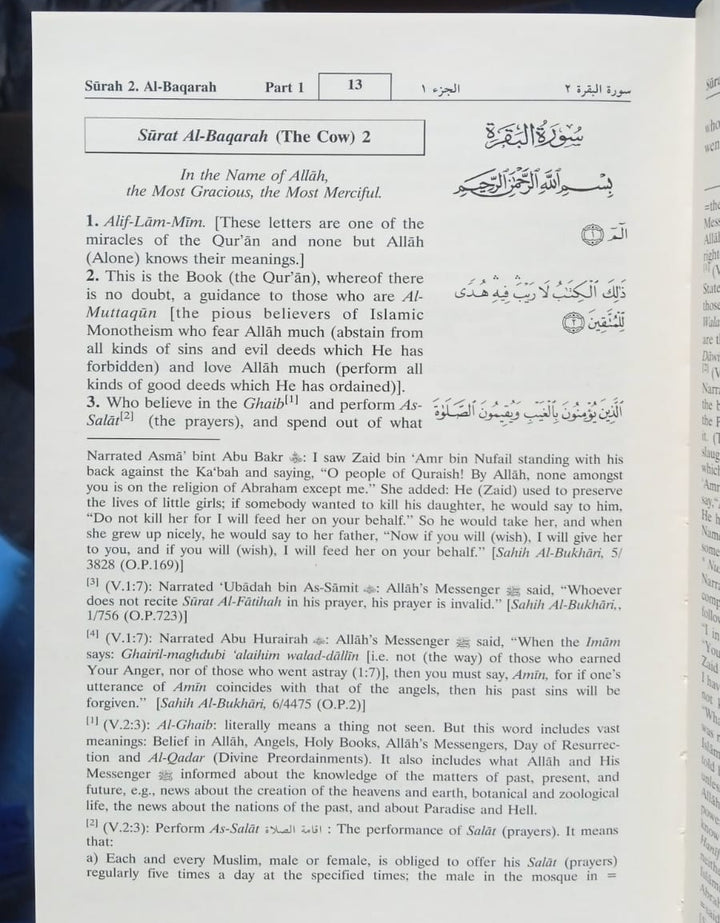 Sūrah 2. Al-Baqarah Part 1 13 الجزء ١ سورة البقرة ٢
Sūrat Al-Baqarah (The Cow) 2
سُورَةُ البَقَرَةِ
In the Name of Allāh,
the Most Gracious, the Most Merciful.
بِسْمِ اللَّهِ الرَّحْمَٰنِ الرَّحِيمِ
1. Alif-Lām-Mīm. [These letters are one of the
miracles of the Qur’ān and none but Allāh
(Alone) knows their meanings.]
الٓمٓ ١
2. This is the Book (the Qur’ān), whereof there
is no doubt, a guidance to those who are Al-
Muttaqūn [the pious believers of Islamic
Monotheism who fear Allāh much (abstain from
all kinds of sins and evil deeds which He has
forbidden) and love Allāh much (perform all
kinds of good deeds which He has ordained)].
ذَٰلِكَ الْكِتَابُ لَا رَيْبَ ۛ فِيهِ ۛ هُدًى
لِّلْمُتَّقِينَ ٢
3. Who believe in the Ghaib[1] and perform As-
Salāt[2] (the prayers), and spend out of what
الَّذِينَ يُؤْمِنُونَ بِالْغَيْبِ وَيُقِيمُونَ الصَّلَوٰةَ
Narrated Asmā’ bint Abu Bakr: I saw Zaid bin ‘Amr bin Nufail standing with his
back against the Ka‘bah and saying, “O people of Quraish! By Allāh, none amongst
you is on the religion of Abraham except me.” She added: He (Zaid) used to preserve
the lives of little girls; if somebody wanted to kill his daughter, he would say to him,
“Do not kill her for I will feed her on your behalf.” So he would take her, and when
she grew up nicely, he would say to her father, “Now if you will (wish), I will give her
to you, and if you will (wish), I will feed her on your behalf.” [Sahih Al-Bukhâri, 5/
3828 (O.P.169)]
[3] (V.1:7): Narrated ‘Ubādah bin As-Sāmit: Allāh’s Messenger ﷺ said, “Whoever
does not recite Sūrat Al-Fātihah in his prayer, his prayer is invalid.” [Sahih Al-Bukhâri,.
1/756 (O.P.723)]
[4] (V.1:7): Narrated Abu Hurairah: Allāh’s Messenger ﷺ said, “When the Imām
says: Ghairil-maghdubi ‘alaihim walad-dāllīn [i.e. not (the way) of those who earned
Your Anger, nor of those who went astray (1:7)], then you must say, Amīn, for if one’s
utterance of Amīn coincides with that of the angels, then his past sins will be
forgiven.” [Sahih Al-Bukhâri, 6/4475 (O.P.2)]
[1] (V.2:3): Al-Ghaib: literally means a thing not seen. But this word includes vast
meanings: Belief in Allāh, Angels, Holy Books, Allāh’s Messengers, Day of Resurrec-
tion and Al-Qadar (Divine Preordainments). It also includes what Allāh and His
Messenger ﷺ informed about the knowledge of the matters of past, present, and
future, e.g., news about the creation of the heavens and earth, botanical and zoological
life, the news about the nations of the past, and about Paradise and Hell.
[2] (V.2:3): Perform As-Salāt اقامة الصلاة : The performance of Salāt (prayers). It means
that:
a) Each and every Muslim, male or female, is obliged to offer his Salāt (prayers)
regularly five times a day at the specified times; the male in the mosque in =